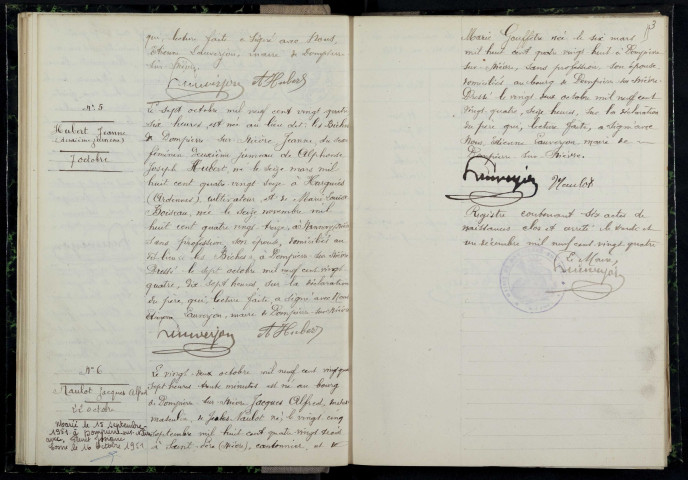 qui, lecture faite a signé avec Nous,
maire de Dompierre-
sur-Nièvre.
A Hubert
N° 5
Hubert Jeanne
(deuxième jumeau)
7 octobre
Le sept octobre mil neuf cent vingt quatre
six heures, est né au lieu dit: les Biches
de Dompierre sur Nièvre Jeanne, du sexe
féminin deuxième jumeau de Alphonse
Joseph Hubert, né le seize mars mil
huit cent quatre vingt seize à Hargnies
(Ardennes), cultivateur et de Marie Louise
Boiseau, née le seize novembre mil
huit cent quatre vingt
sans profession son épouse, domiciliés au
lieu les Biches, à Dompierre sur Nièvre
Dressé le sept octobre mil neuf cent vingt
quatre, dix sept heures, sur la déclaration
du père, qui, lecture faite, a signé avec Nous
maire de Dompierre sur Nièvre
A Hubert
N° 6
Naulot Jacques Alfred
22 octobre
Marié le 15 septembre
1951 à Dompierre sur Nièvre
avec
le 10 octobre 1951
Le vingt deux octobre mil neuf cent vingt quatre
sept heures trente minutes est né au bourg
de Dompierre sur Nièvre Jacques Alfred, du sexe
masculin, de Naulot né le vingt cinq
septembre mil huit cent quatre vingt
à Saint (Nièvre), cantonnier, et de
3
Marie née le six mars
mil huit cent quatre vingt huit à Dompierre
sur-Nièvre, sans profession son épouse
domiciliés au bourg de Dompierre sur Nièvre
Dressé le vingt deux octobre mil neuf cent
vingt quatre, seize heures, sur la déclaration
du père qui, lecture faite, a signé avec
Nous, maire de
Dompierre sur Nièvre.
Naulot
Registre contenant six actes de
naissances clos et arrêté le trente et
un décembre mil neuf cent vingt quatre
Le Maire,